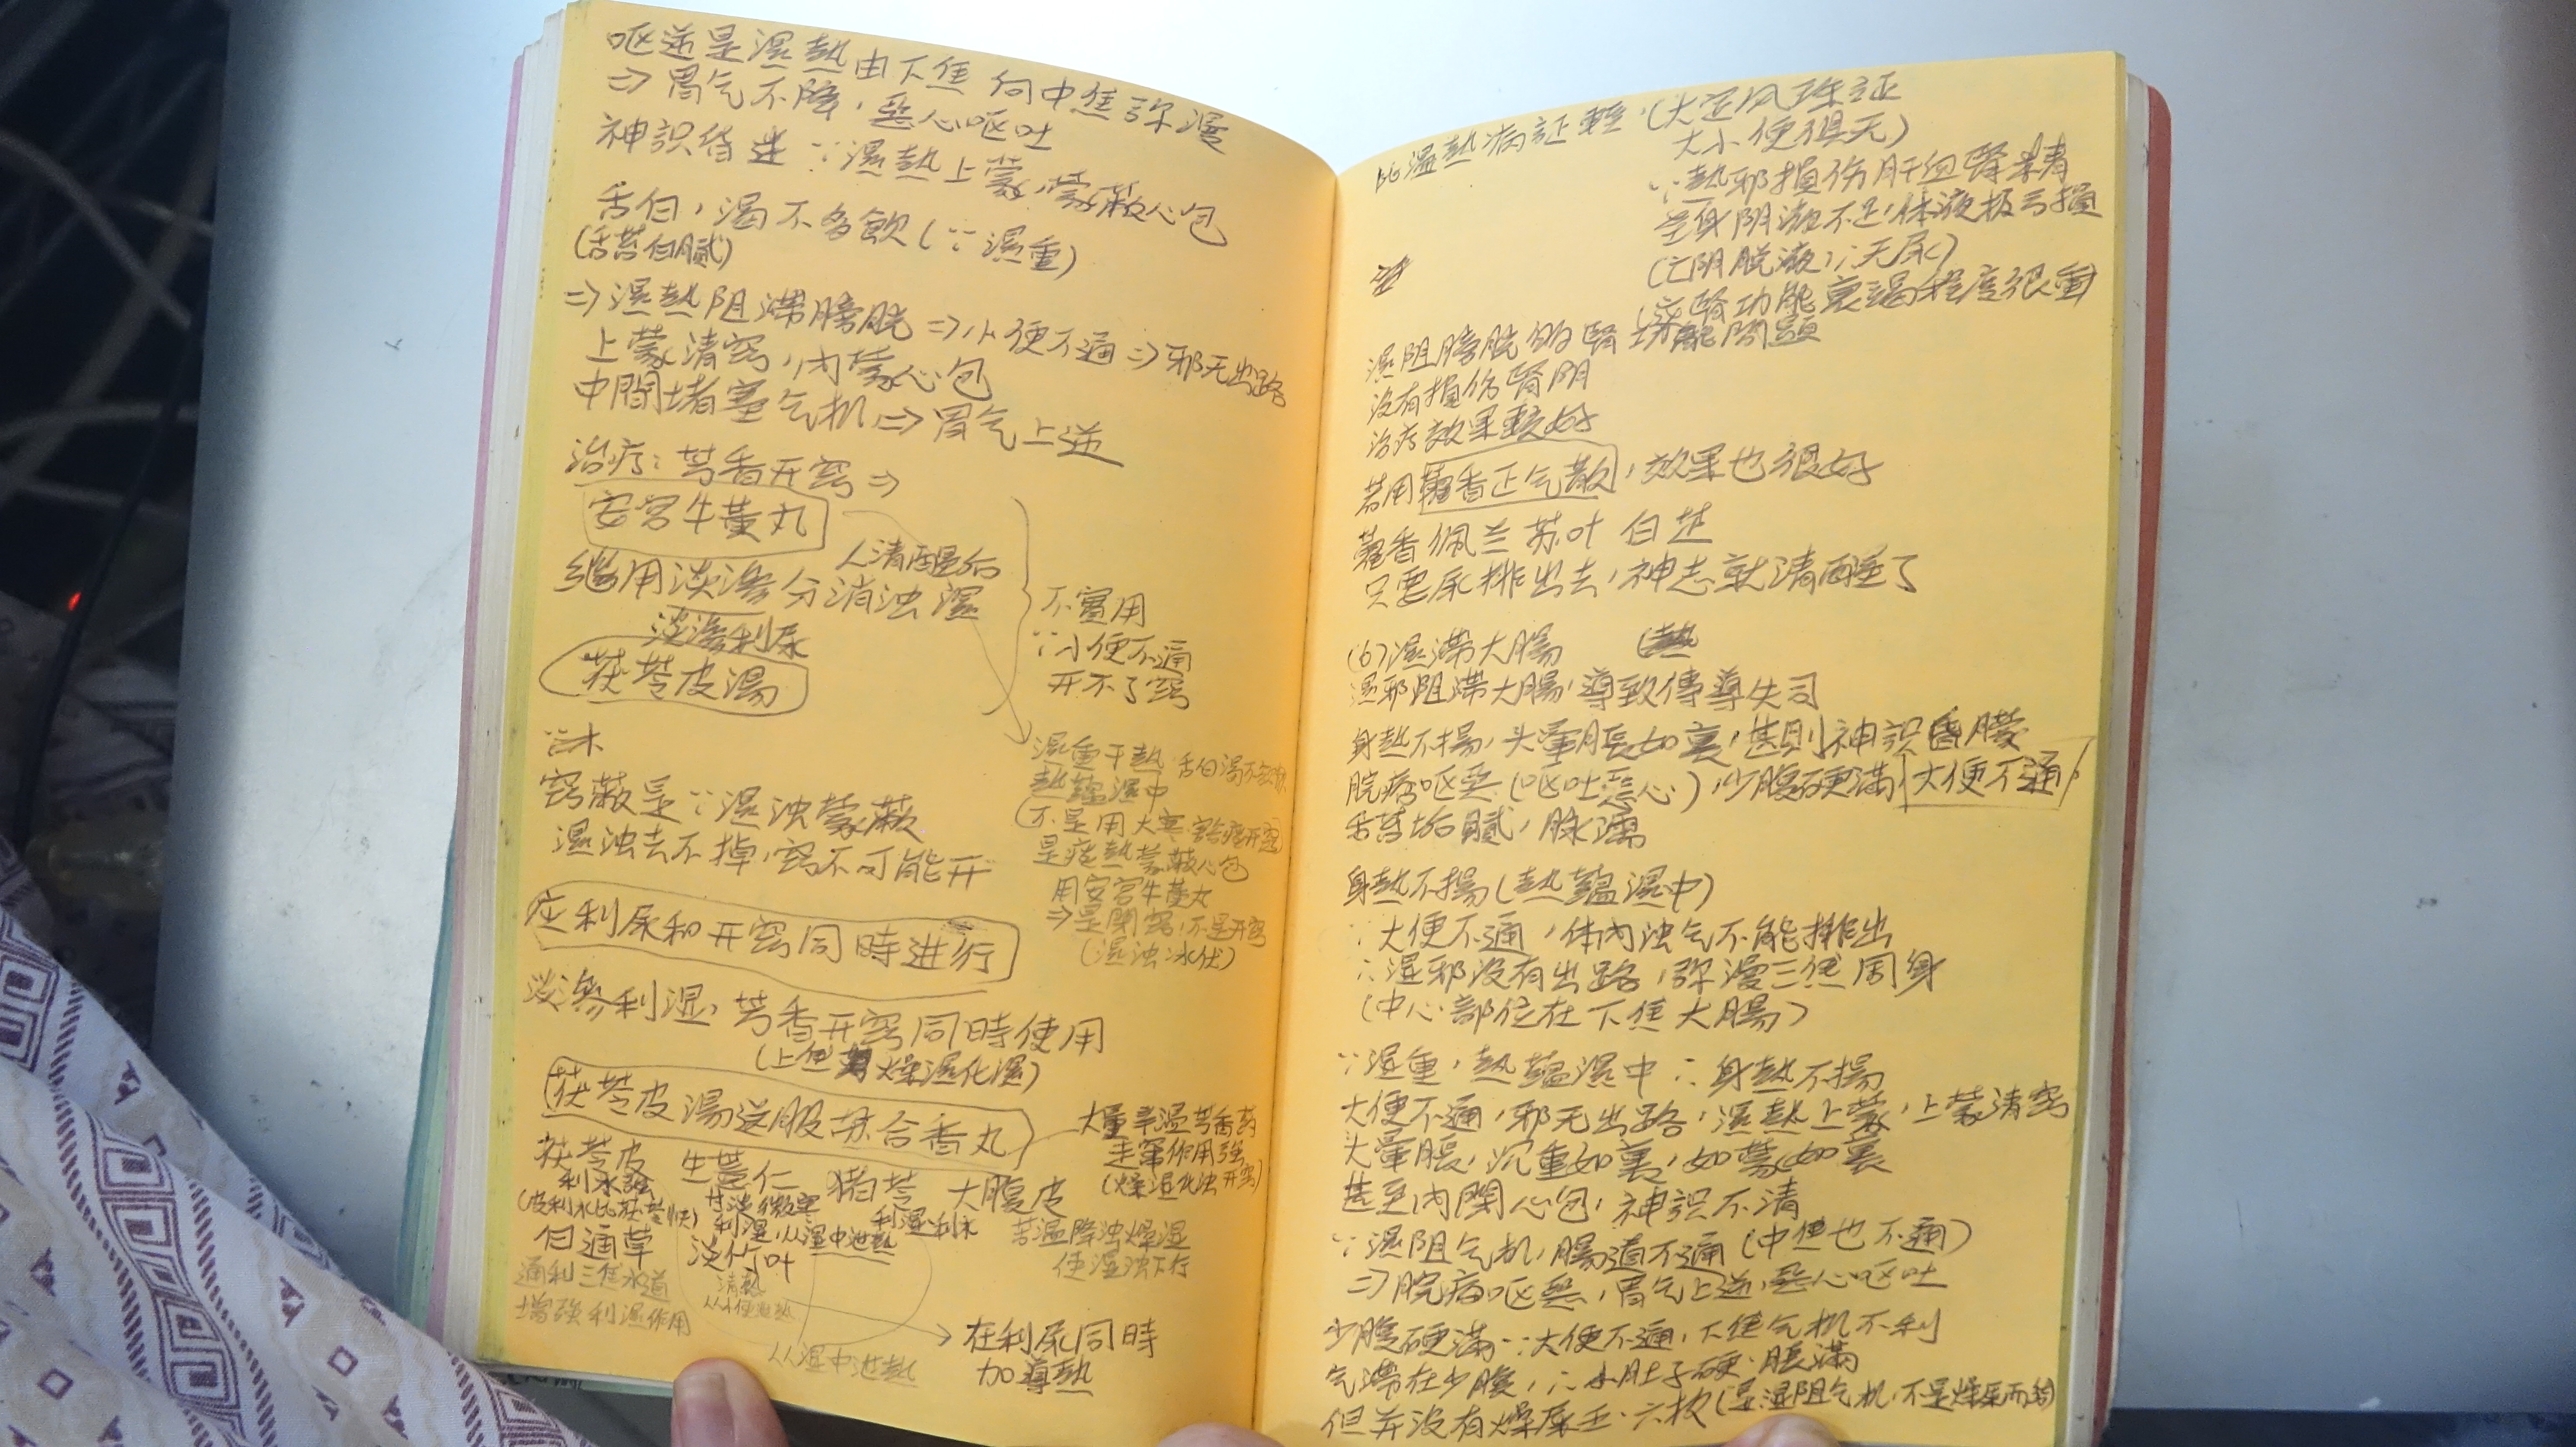 呕逆是濕熱由下焦向中焦弥漫
⇒胃气不降，惡心呕吐
神識昏迷∵濕熱上蒙，蒙蔽心包
舌白，渴不多飲(∵濕重)
(舌苔白膩)
⇒濕熱阻滯膀胱⇒小便不通⇒邪无出路
上蒙清窍，內蒙心包
中間堵塞气机⇒胃气上逆
治疗：芳香开窍⇒
安宮牛黃丸
人清醒后
继用淡滲分消浊濕
淡滲利尿
茯苓皮湯
不實用
∵小便不通
开不了窍
窍蔽是∵濕浊蒙蔽
濕浊去不掉，窍不可能开
濕重于熱 舌白渴不多飲
熱蘊濕中
(不是用大寒
是痰熱蒙蔽心包
用安宮牛黃丸
⇒是閉窍，不是开窍
(濕浊冰伏)
应利尿和开窍同時进行
淡滲利湿，芳香开窍同時使用
(上焦 燥濕化濕)
茯苓皮湯送服苏合香丸
大量辛溫芳香药
走窜作用強
(燥湿化浊开窍)
茯苓皮 生薏仁 猪苓 大腹皮
利水強
(皮利水比茯苓 )
甘淡微寒
利湿，从濕中泄熱
利湿利水
苦溫降浊燥湿
使湿浊下行
白通草 淡竹叶
通利三焦水道
增強利濕作用
清熱
从小便泄熱
从濕中泄熱
在利尿同時
加導熱
比溫熱病証輕，(大定风珠証
大小便俱无)
∵熱邪損伤肝血腎精
全身阴液不足，体液极亏損
(亡阴脱液，∴无尿)
腎功能衰竭程度很重
濕阻膀胱的腎功能問題
沒有損伤腎阴
治疗效果較好
若用藿香正气散，效果也很好
藿香佩兰苏叶白芷
只要尿排出去，神志就清醒了
(6)濕滯大腸
濕邪阻滯大腸，導致傳導失司
身熱不揚，头暈脹如裹，甚則神識昏朦
脘痞呕惡(呕吐惡心)，少腹硬滿，大便不通，
舌苔垢膩，脉濡
身熱不揚(熱蘊濕中)
∵大便不通，体內浊气不能排出
∴濕邪沒有出路，弥漫三焦周身
(中心部位在下焦大腸)
∵濕重，熱蘊濕中∴身熱不揚
大便不通，邪无出路，濕熱上蒙，上蒙清窍
头暈脹，沉重如裹，如蒙如裹
甚至內閉心包，神識不清
∵濕阻气机，腸道不通(中焦也不通)
⇒脘痞呕惡，胃气上逆，惡心呕吐
少腹硬滿∵大便不通，下焦气机不利
气滯在少腹，∴小肚子硬，脹滿
但并沒有燥屎 (是湿阻气机，不是燥屎